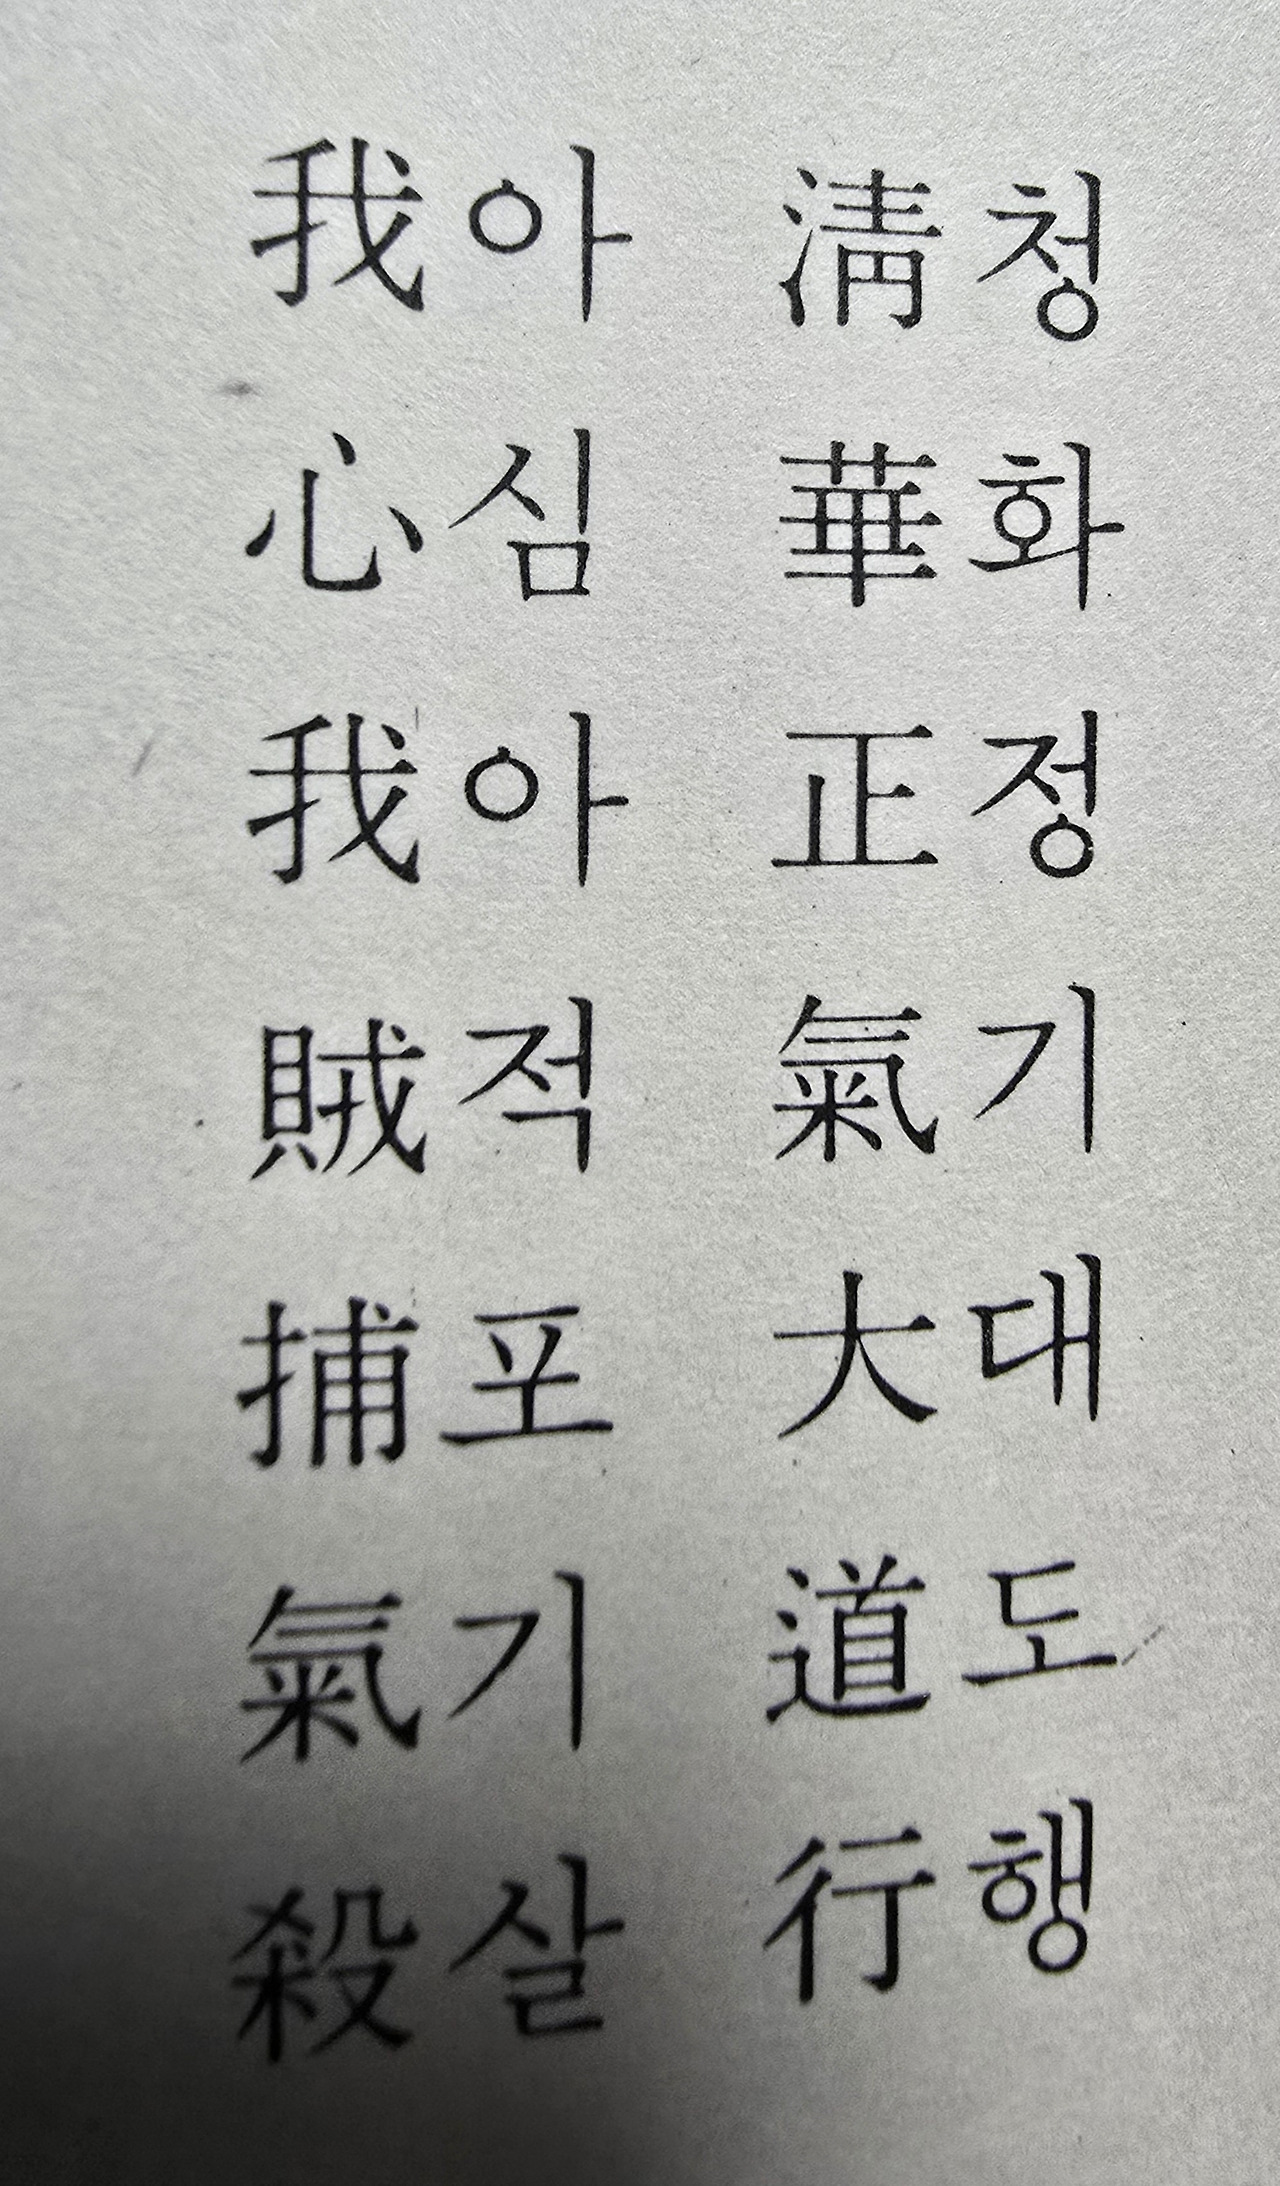 淸청華화正정氣기大대道도行행
我아心심我아賊적捕포氣기殺살